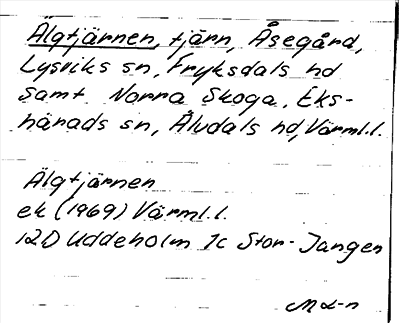 Älgtjärnen, tjärn, Åsegård,
Lysviks sn, Fryksdals hd
samt Norra Skoga, Eks-
härads sn, Älvdals hd, Värml.l.
Älgtjärnen
ek (1969) Värml.l.
12D Uddeholm 1c Stor-Jangen